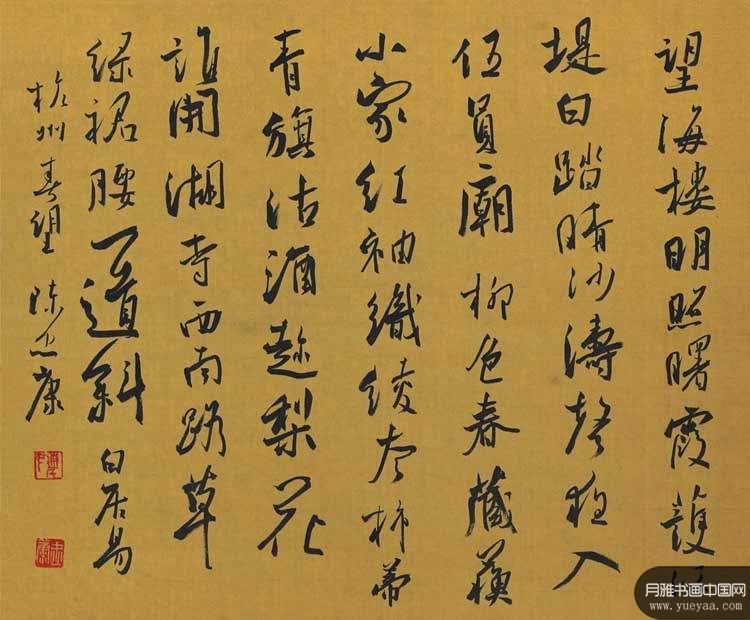 望海楼明照曙霞護江
堤白踏晴沙濤聲夜入
伍員廟柳色春藏蘇
小家红袖織綾夸柿蒂
青旗沽酒趁梨花
誰開湖寺西南路草
绿裙腰一道斜 白居易
杭州春望 陈忠康
月雅书画中国网
www.yueyaa.com